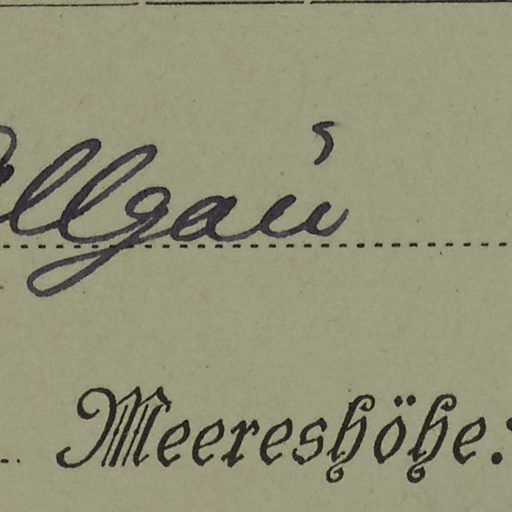 Allgäu
Meereshöhe: